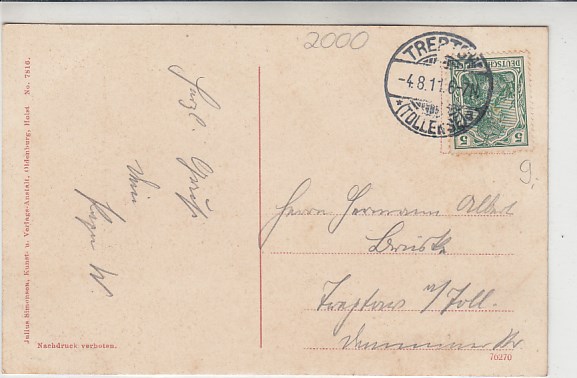 2000
TREPTOW
-4.8.11.6-7N.
*(TOLLENSE)*
DEUTSCHES REICH
5 5
9.
Herzl. Gruß
Dein
W.
Herrn Hermann Albert
Treptow a/Toll.
Demminer Str
Julius Simonsen, Kunst- u. Verlags-Anstalt, Oldenburg, Holst No. 7816.
Nachdruck verboten.
70270